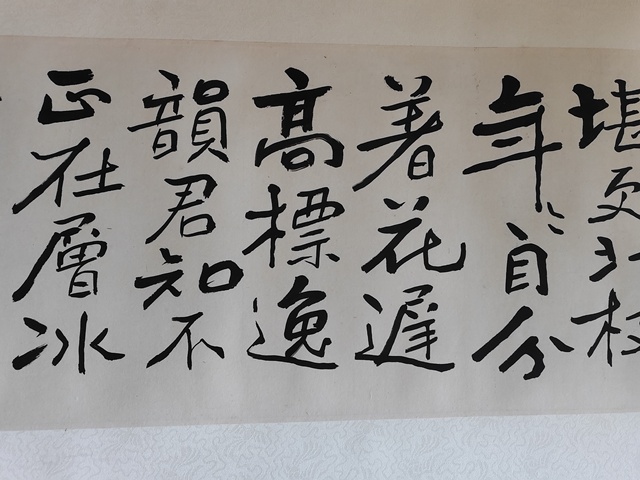 堪更北枝
年〻自分
着花遲
高標逸
韻君知不
正在層冰